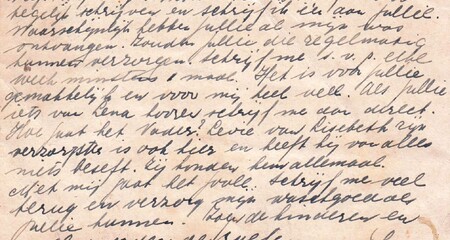 schrijven en schrijf ik één aan jullie.
Waarschijnlijk hebben jullie al mijn was
ontvangen. Zouden jullie die regelmatig
kunnen verzorgen. Schrijf me s.v.p. elke
week minstens 1 maal. Het is voor jullie
gemakkelijk en voor mij heel veel. Als jullie
iets van Lena hooren schrijf me dan direct.
Hoe gaat het Vader? van Liesbeth zijn
is ook hier en heeft hij van alles
niets beseft. Zij houden hem allemaal.
Met mij gaat het goed. Schrijf me veel
terug en verzorg mijn waschgoed als
jullie kunnen. de kinderen en